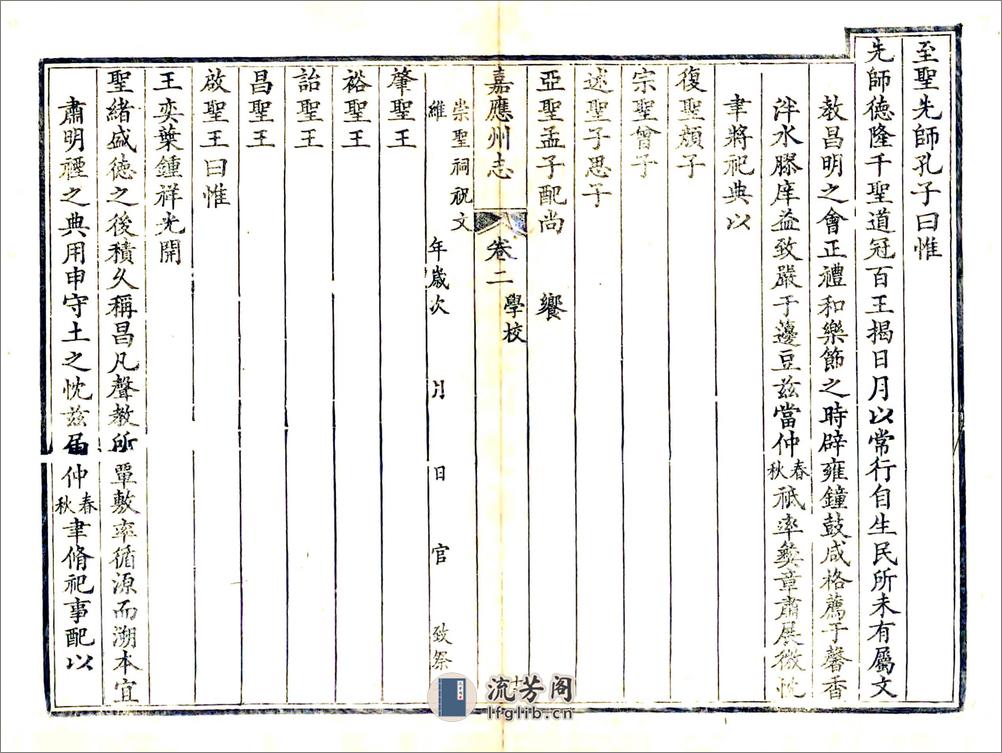 至聖先師孔子曰惟
先師德隆千聖道冠百王揭日月以常行自生民所未有屬文
教昌明之會正禮和樂節之時辟雍鐘鼓咸格薦于馨香
泮水膠庠益致嚴于籩豆兹當仲春秋祗率彜章肅展微忱
聿將祀典以
復聖顔子
宗聖曾子
述聖子思子
亞聖孟子配尚 饗
嘉應州志 卷二 學校
崇聖祠祝文
維 年歲次 月 日 官 致祭
肇聖王
裕聖王
詒聖王
昌聖王
啟聖王曰惟
王奕葉鍾祥光開
聖緒盛德之後積久稱昌凡聲教所覃敷率循源而溯本宜
肅明禋之典用申守土之忱兹届仲春秋聿脩祀事配以
流芳阁
lfglib.cn